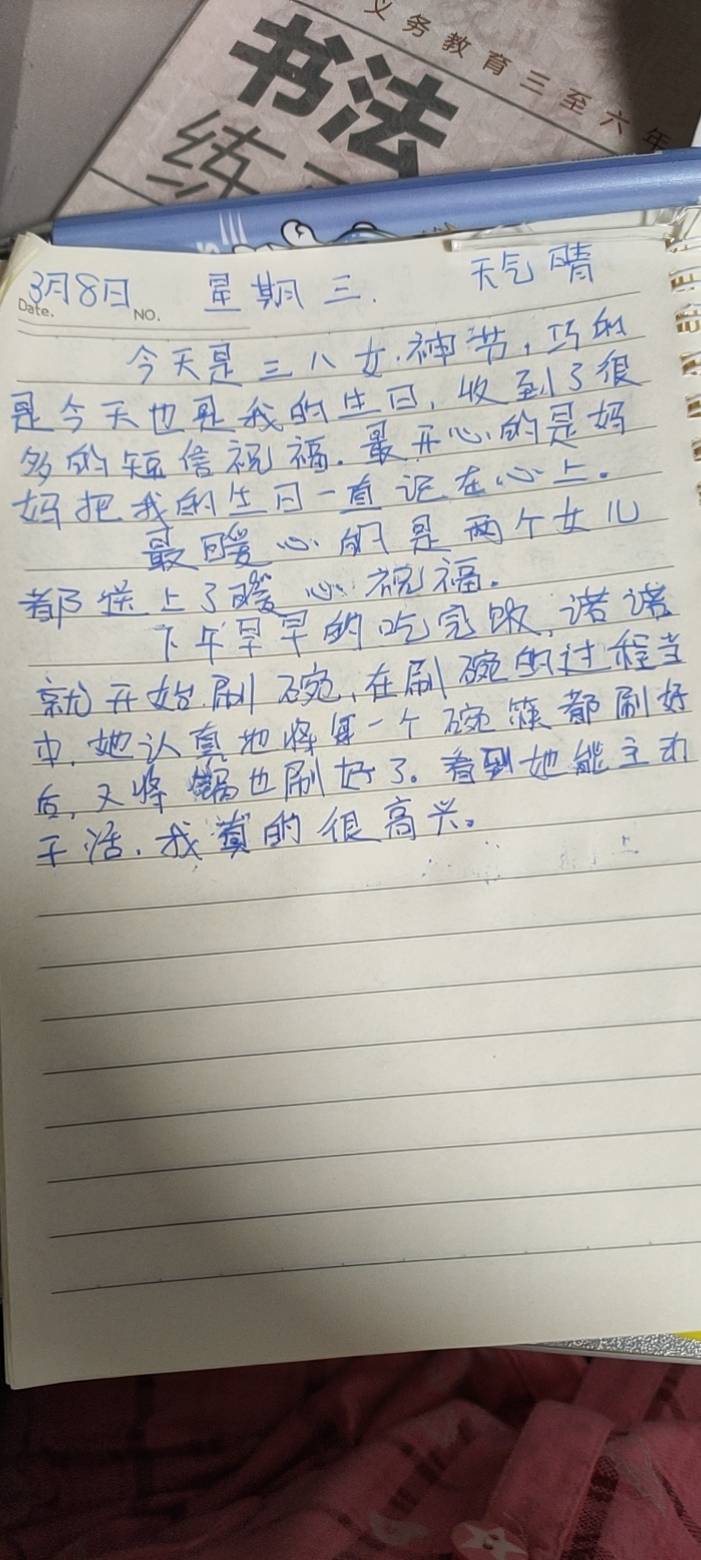 义务教育三至六年
书法
练
3月8日 星期三. 天气晴
Date. NO.
今天是三八女神节,巧的
是今天也是我的生日,收到了很
多的短信祝福.最开心的是妈
妈把我的生日一直记在心上。
最暖心的是两个女儿
都送上了暖心祝福.
下午早早的吃完饭,诺诺
就开始刷碗,在刷碗的过程当
中,她认真地将每一个碗筷都刷好
后,又将锅也刷好了。看到她能主动
干活.我真的很高兴。